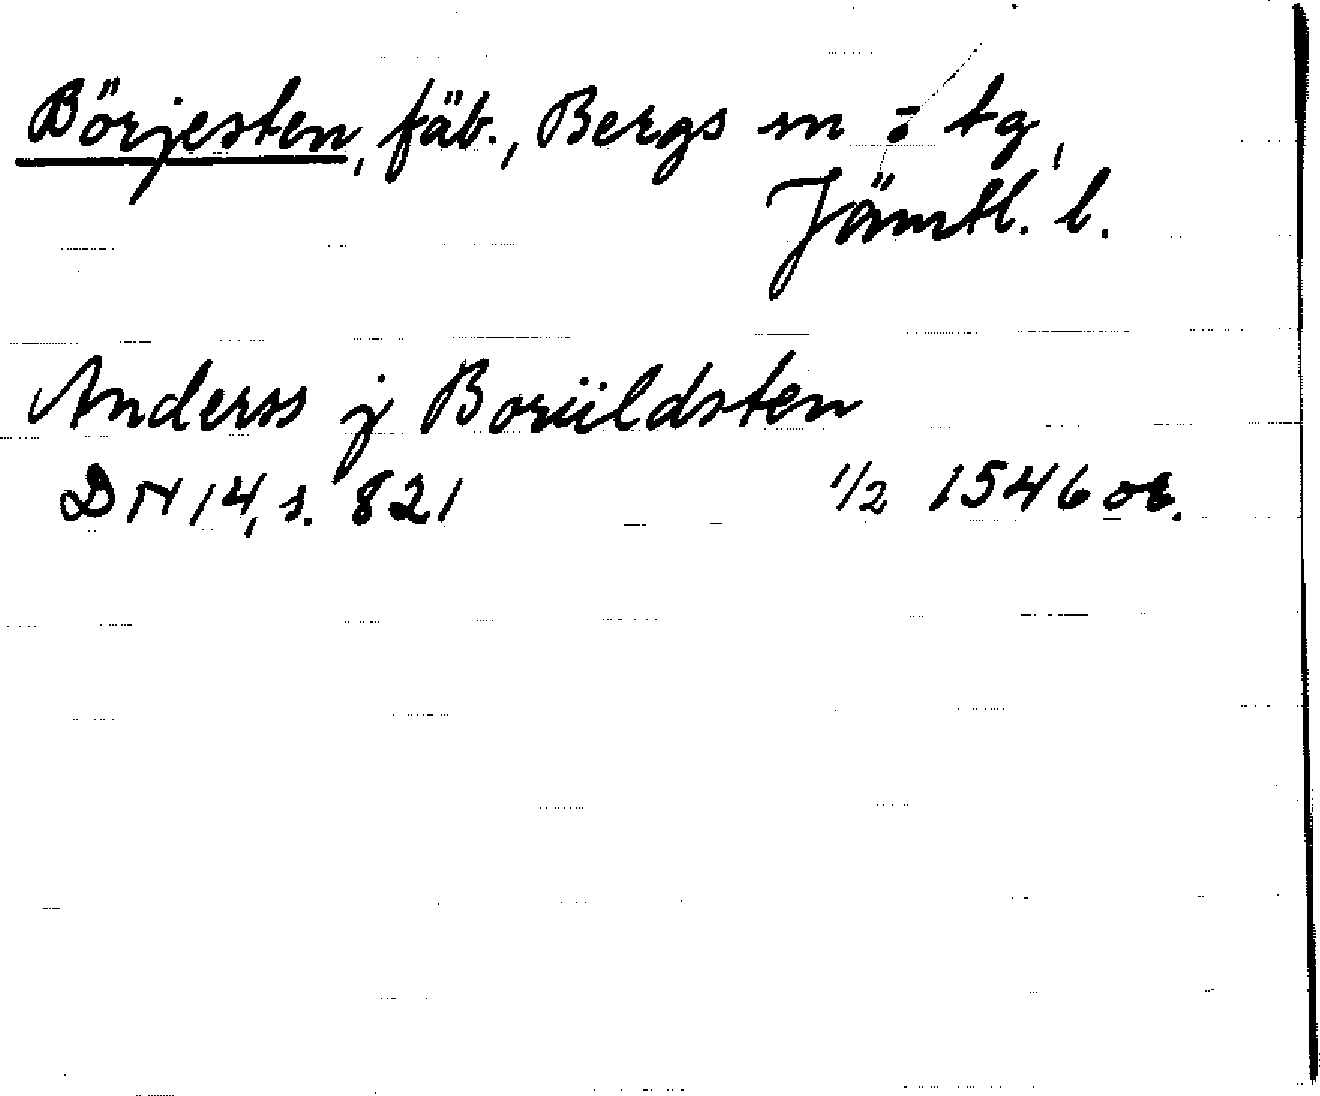 Börjesten, fäb., Bergs sn o tg,
Jämtl. l.
Anderss j Boruildsten
DN 14, s. 821 1/2 1546 or.